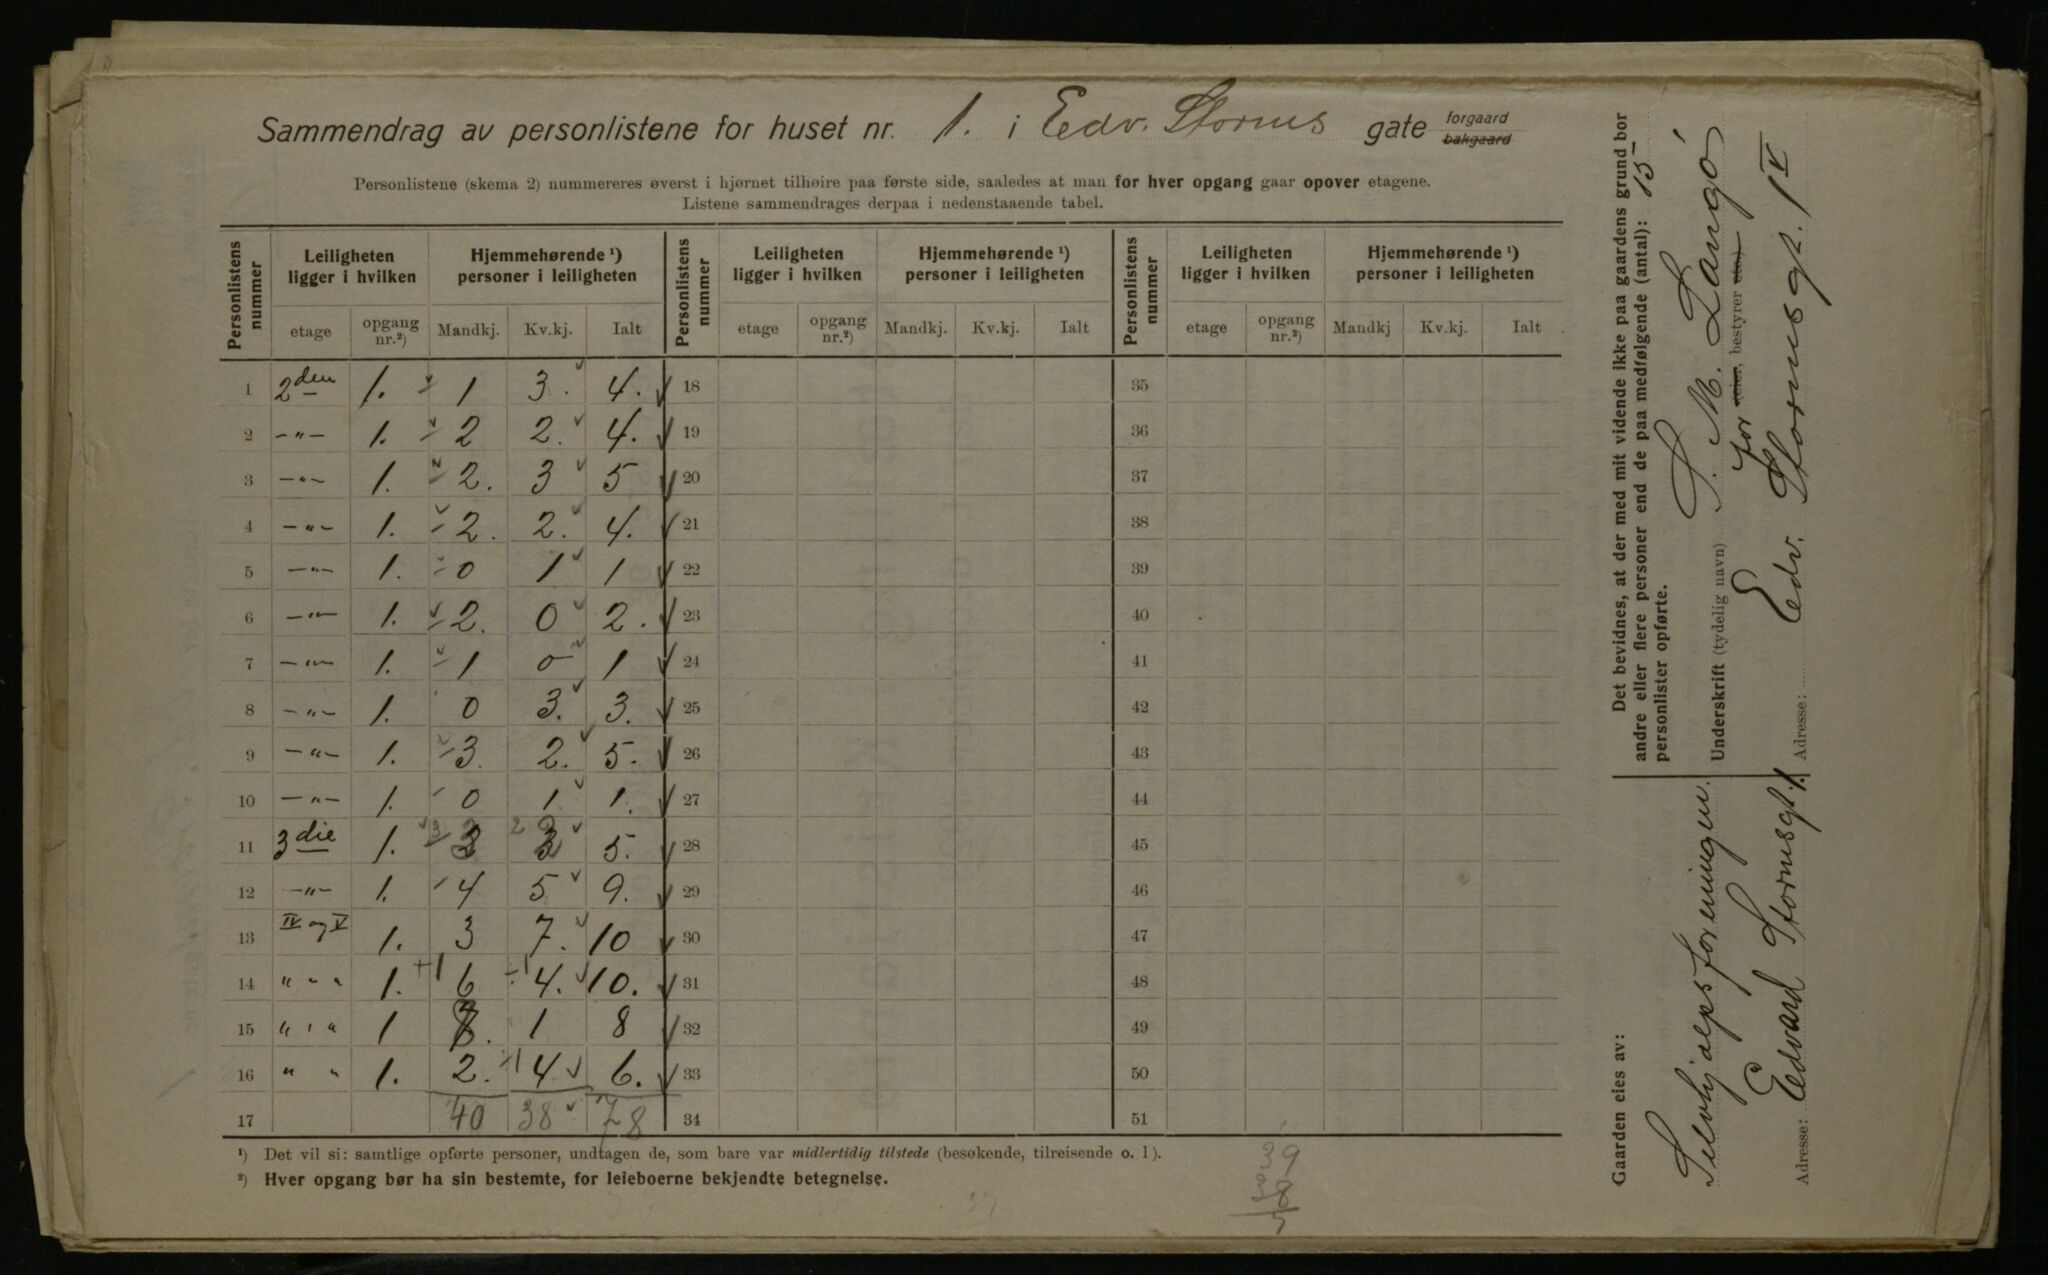 Sammendrag av personlistene for huset nr. 1. i Edv. Storms gate forgaard bakgaard
Personlistene (skema 2) nummereres øverst i hjørnet tilhøire paa første side, saaledes at man for hver opgang gaar opover etagene.
Listene sammendrages derpaa i nedenstaaende tabel.
Personlistens nummer | Leiligheten ligger i hvilken | Hjemmehørende ¹) personer i leiligheten | Personlistens nummer | Leiligheten ligger i hvilken | Hjemmehørende ¹) personer i leiligheten | Personlistens nummer | Leiligheten ligger i hvilken | Hjemmehørende ¹) personer i leiligheten
etage | opgang nr.²) | Mandkj. | Kv.kj. | Ialt | etage | opgang nr.²) | Mandkj. | Kv.kj. | Ialt | etage | opgang nr.²) | Mandkj | Kv.kj. | Ialt
1 2den 1. 1 3. 4. 18 35
2 -"- 1. 2 2. 4. 19 36
3 -"- 1. 2. 3 5 20 37
4 -"- 1. 2. 2. 4. 21 38
5 -"- 1. 0 1 1 22 39
6 -"- 1. 2. 0 2. 23 40
7 -"- 1. 1 0 1 24 41
8 -"- 1. 0 3. 3. 25 42
9 -"- 1. 3. 2. 5. 26 43
10 -"- 1. 0 1 1. 27 44
11 3die 1. 3 2 5. 28 45
12 -"- 1. 4 5 9. 29 46
13 IV og V 1. 3 7. 10 30 47
14 " " " 1. +1 6 ÷1 4. 10. 31 48
15 " " " 1 7. 1 8 32 49
16 " " 1. 2. 4 6. 33 50
17 40 38 78 34 51
¹) Det vil si: samtlige opførte personer, undtagen de, som bare var midlertidig tilstede (besøkende, tilreisende o. l).
²) Hver opgang bør ha sin bestemte, for leieboerne bekjendte betegnelse.
39
38
Det bevidnes, at der med mit vidende ikke paa gaardens grund bor
andre eller flere personer end de paa medfølgende (antal): 15
personlister opførte.
Underskrift (tydelig navn) S. M. Langö
for eier, bestyrer etc.)
Adresse: Edv. Stormsgt. 1 IV
Gaarden eies av:
Selvhjælpsforeningen.
Adresse: Edvard Stormsgt. 1.